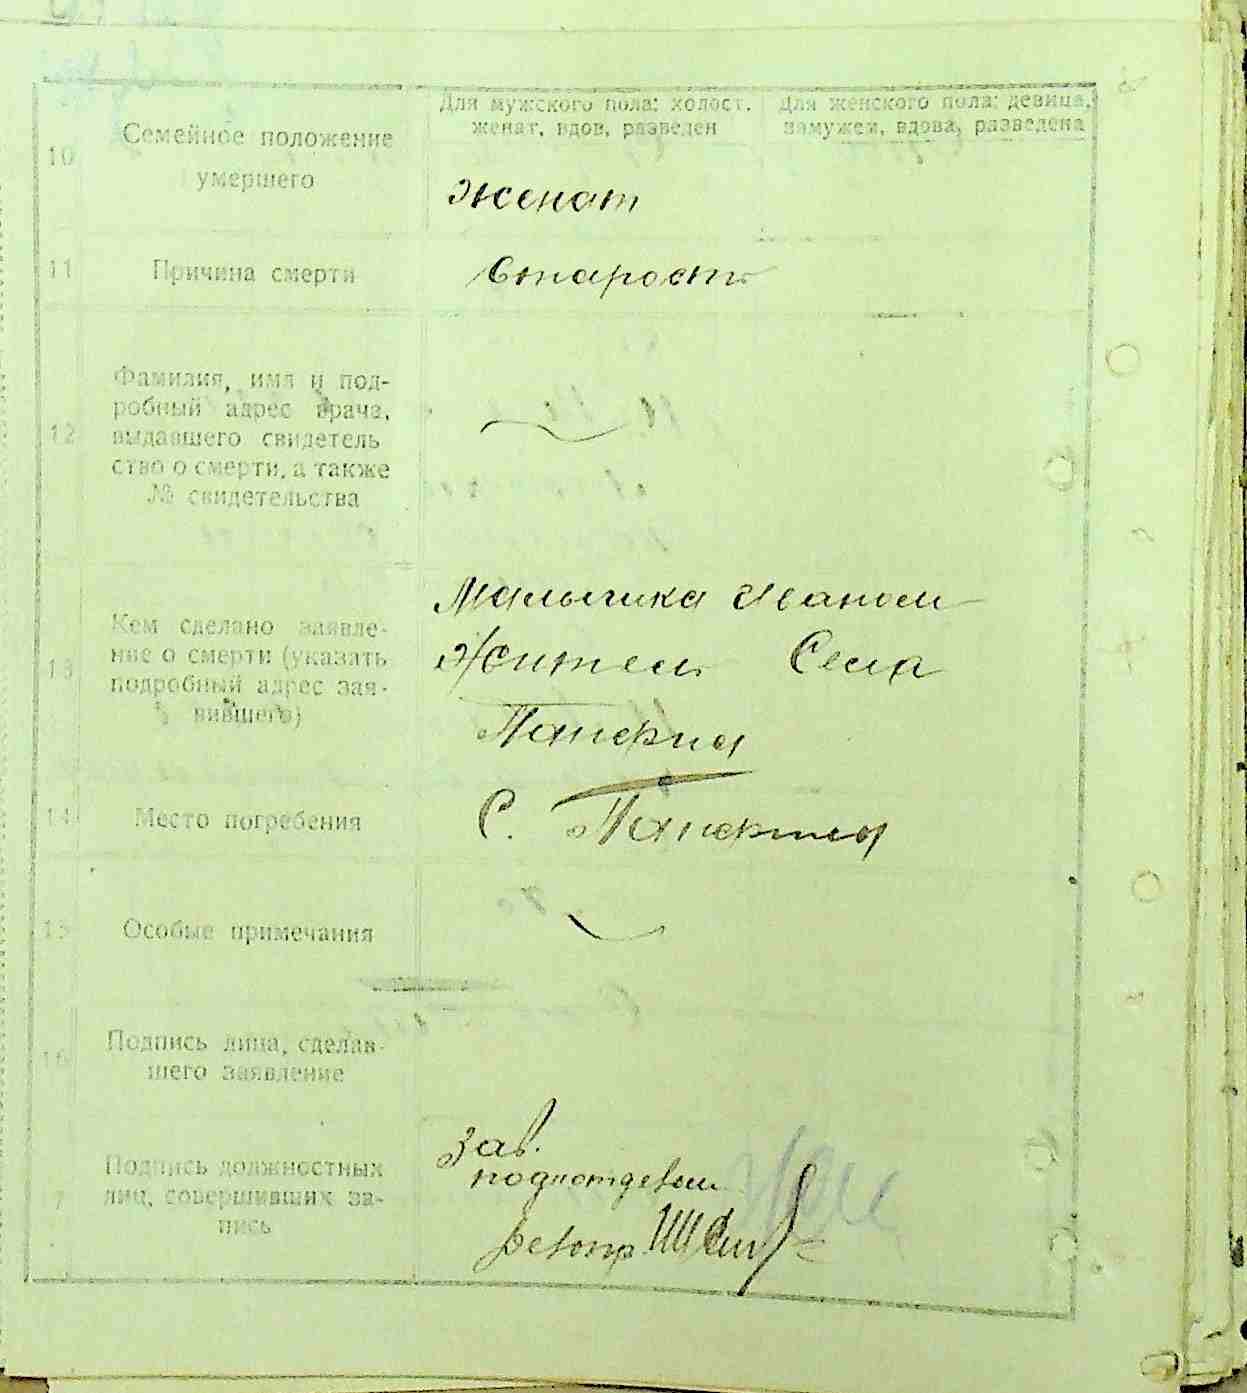 10
Семейное положение
умершего
Для мужского пола: холост,
женат, вдов, разведен
Для женского пола: девица,
замужем, вдова, разведена
женат
11
Причина смерти
Старость
12
Фамилия, имя и под-
робный адрес врача,
выдавшего свидетель
ство о смерти, а также
№ свидетельства
13
Кем сделано заявле-
ние о смерти (указать
подробный адрес зая-
вившего)
Иваном
Житель Села
14
Место погребения
С.
15
Особые примечания
16
Подпись лица, сделав-
шего заявление
7
Подпись должностных
лиц, совершивших за-
пись
Зав.
подотделом